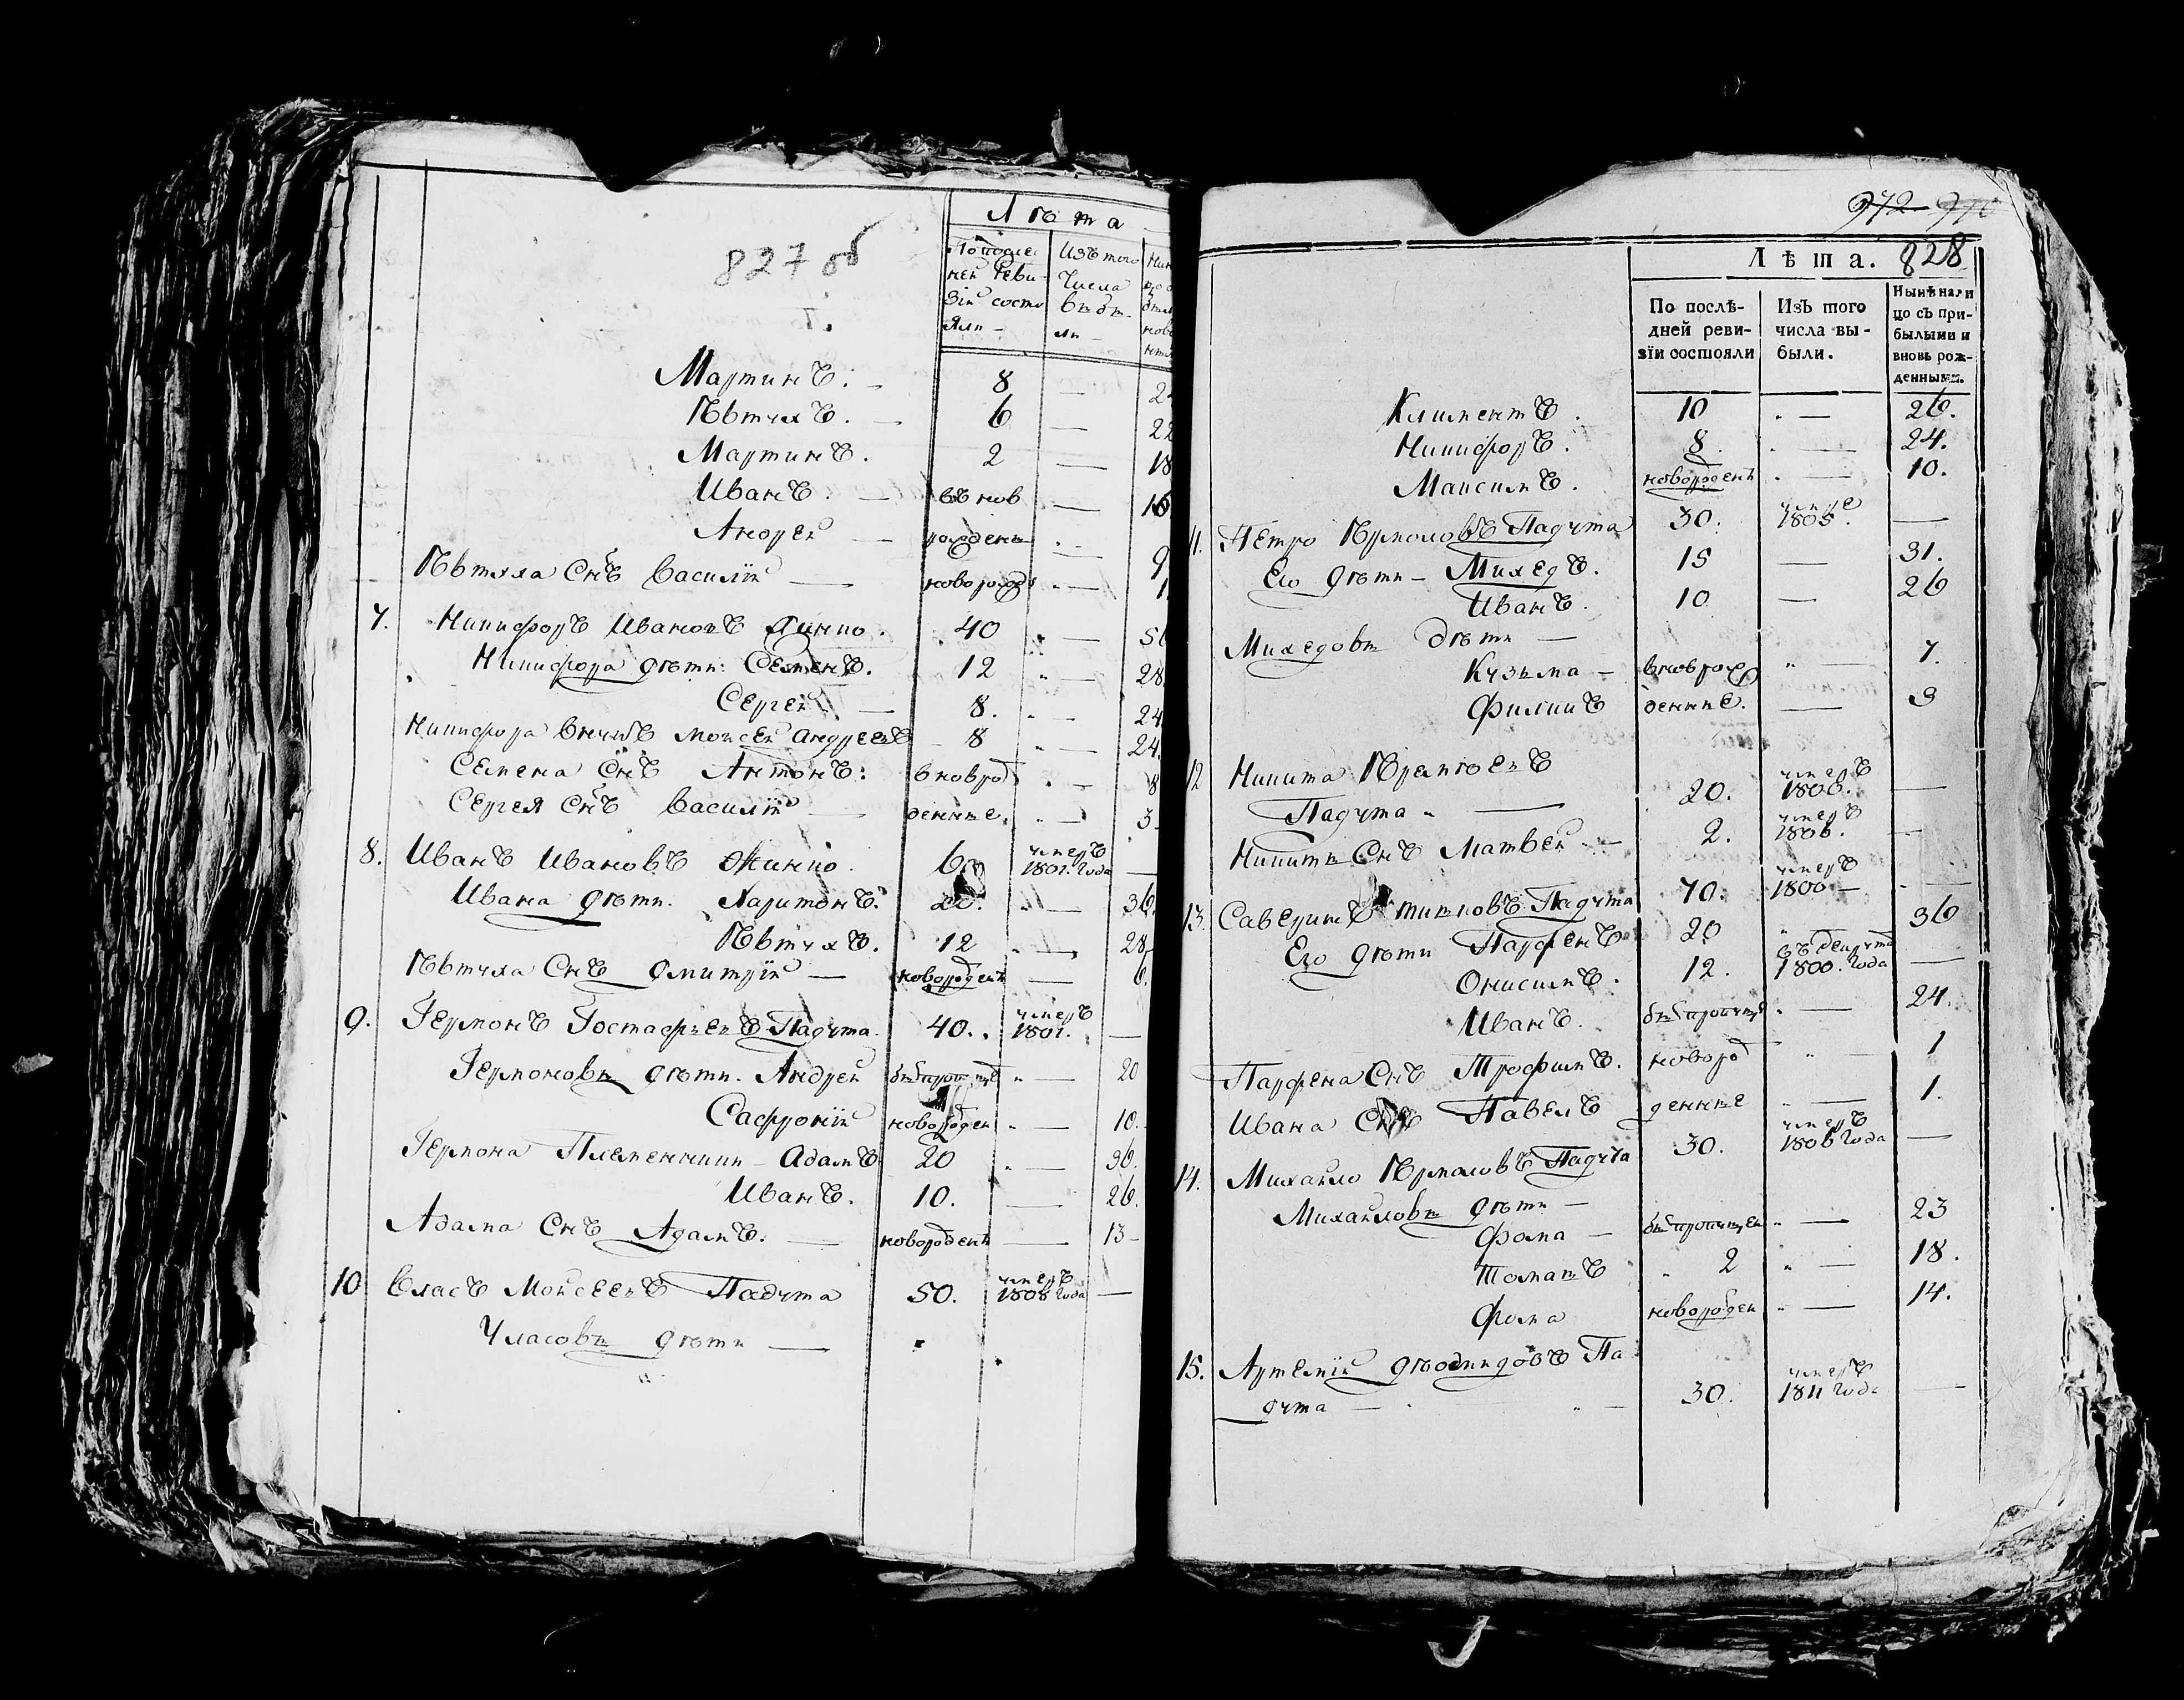 827 об
Лѣта
По послѣ-
ней реви-
зіи состо
яли —
Изъ того
числа
выбы-
ли —
Мартинъ. — 8 —
Евтухъ. — 6 — 22
Мартинъ. 2 — 18
Иванъ. — въ нов — 16
Андрей — рожденъ — 9
Евтуха Снъ Василій — новорожд — 1.
7. Никифоръ Ивановъ 40 —
Никифора дѣти: Семенъ. 12 — 28.
Сергей — 8. — 24
Никифора внукъ Мойсей Андреевъ — 8 — 24.
Семена Снъ Антонъ: вноврод — 8
Сергея Снъ Василій — денные. — 3-
8. Иванъ Ивановъ 60 умеръ
1801. года —
Ивана дѣти. Харитонъ: 20. — 36.
Евтухъ. 12 — 28-
Евтуха Снъ Дмитрій — новорожденъ — 6.
9. Гермонъ Гостафьевъ Падута. 40. умеръ
1801. —
Гермоновы дѣти. Андрей бывъ пропущ — 20
Сафроній новорожден — 10.
Гермона Племенники — Адамъ 20 — 36.
Иванъ. 10. — 26.
Адама Снъ Адамъ. — новорожденъ — 13-
10 Власъ Мойсеевъ Падута 50. умеръ
1808 года —
Уласовы дѣти —
828
Лѣта.
По послѣ-
дней реви-
зіи состояли
Изъ того
числа вы-
были.
Нынѣ нали
цо съ при-
былыми и
вновь рож-
денными.
Климентъ. 10 — 26.
Никифоръ. 8. — 24.
Максимъ. новорожденъ — 10.
11. Петро Ермоловъ Падута 30. умеръ
1805. —
Его дѣти — Михедъ. 15 — 31.
Иванъ. 10 — 26
Михедовы дѣти —
Кузьма — вноврож — 7.
Филипъ денные. — 3
12 Никита Еремѣевъ
Падута — 20. умеръ
1806. —
Никиты Снъ Матвей — 2. умеръ
1806. —
13. Саверинъ Падута 70. умеръ
1800 — —
Его дѣти Парфенъ 20 — 36
Онисимъ. 12. въ рекруты
1800. года —
Иванъ. бывъ пропущ — 24.
Парфена Снъ Трофимъ. новорож — 1
Ивана Снъ Павелъ денные — 1.
14. Михайло Ермоловъ Падута 30. умеръ
1806 года —
Михайловы дѣти —
Фома — бывъ пропущен — 23
2 — 18.
Фома новорожден — 14.
15. Артемій Па
дута — 30. умеръ
1811 года —